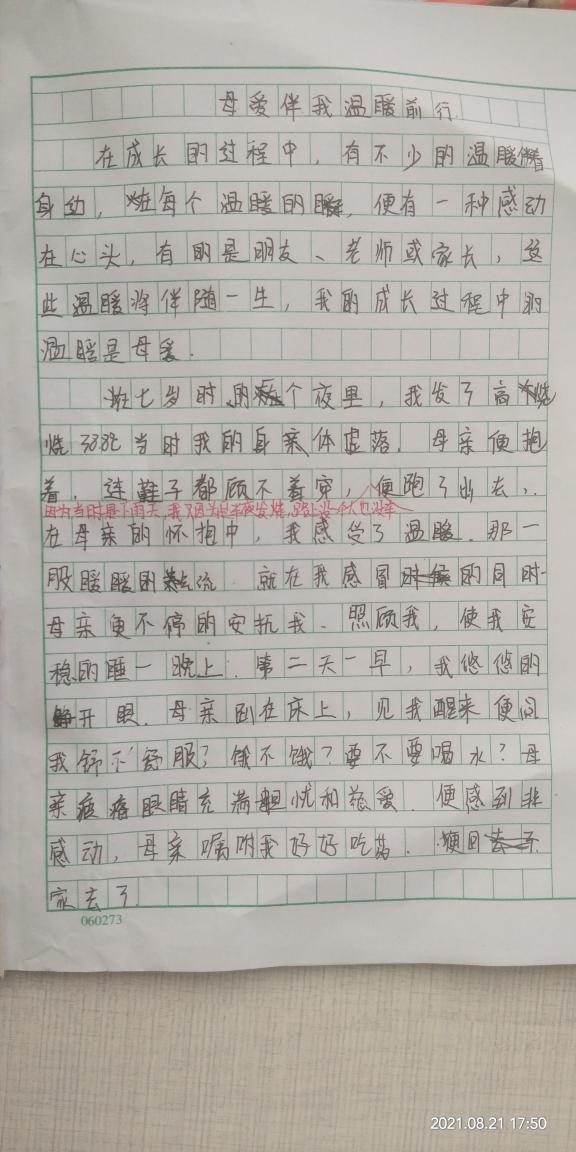 母爱伴我温暖前行
在成长的过程中，有不少的温暖伴着
身边，在每个温暖的，便有一种感动
在心头，有的是朋友、老师或家长，这
些温暖将伴随一生，我的成长过程中的
温暖是母爱.
在七岁时的个夜里，我发了高烧
烧38.8℃当时我的身亲体虚落.母亲便抱
着.连鞋子都顾不着穿，便跑了出去..
因为当时是下雨天,我又因为是半夜发烧,路上没个人也没车
在母亲的怀抱中，我感受了温暖.那一
股暖暖的流就在我感冒的同时
母亲便不停的安抚我、照顾我，使我安
稳的睡一晚上.第二天一早，我悠悠的
开眼.母亲趴在床上，见我醒来便问
我舒不舒服？饿不饿？要不要喝水？母
亲疲痛眼睛充满担忧和慈爱.便感到非
感动，母亲嘱咐我好好吃药.便回
家去了
060273
2021.08.21 17:50